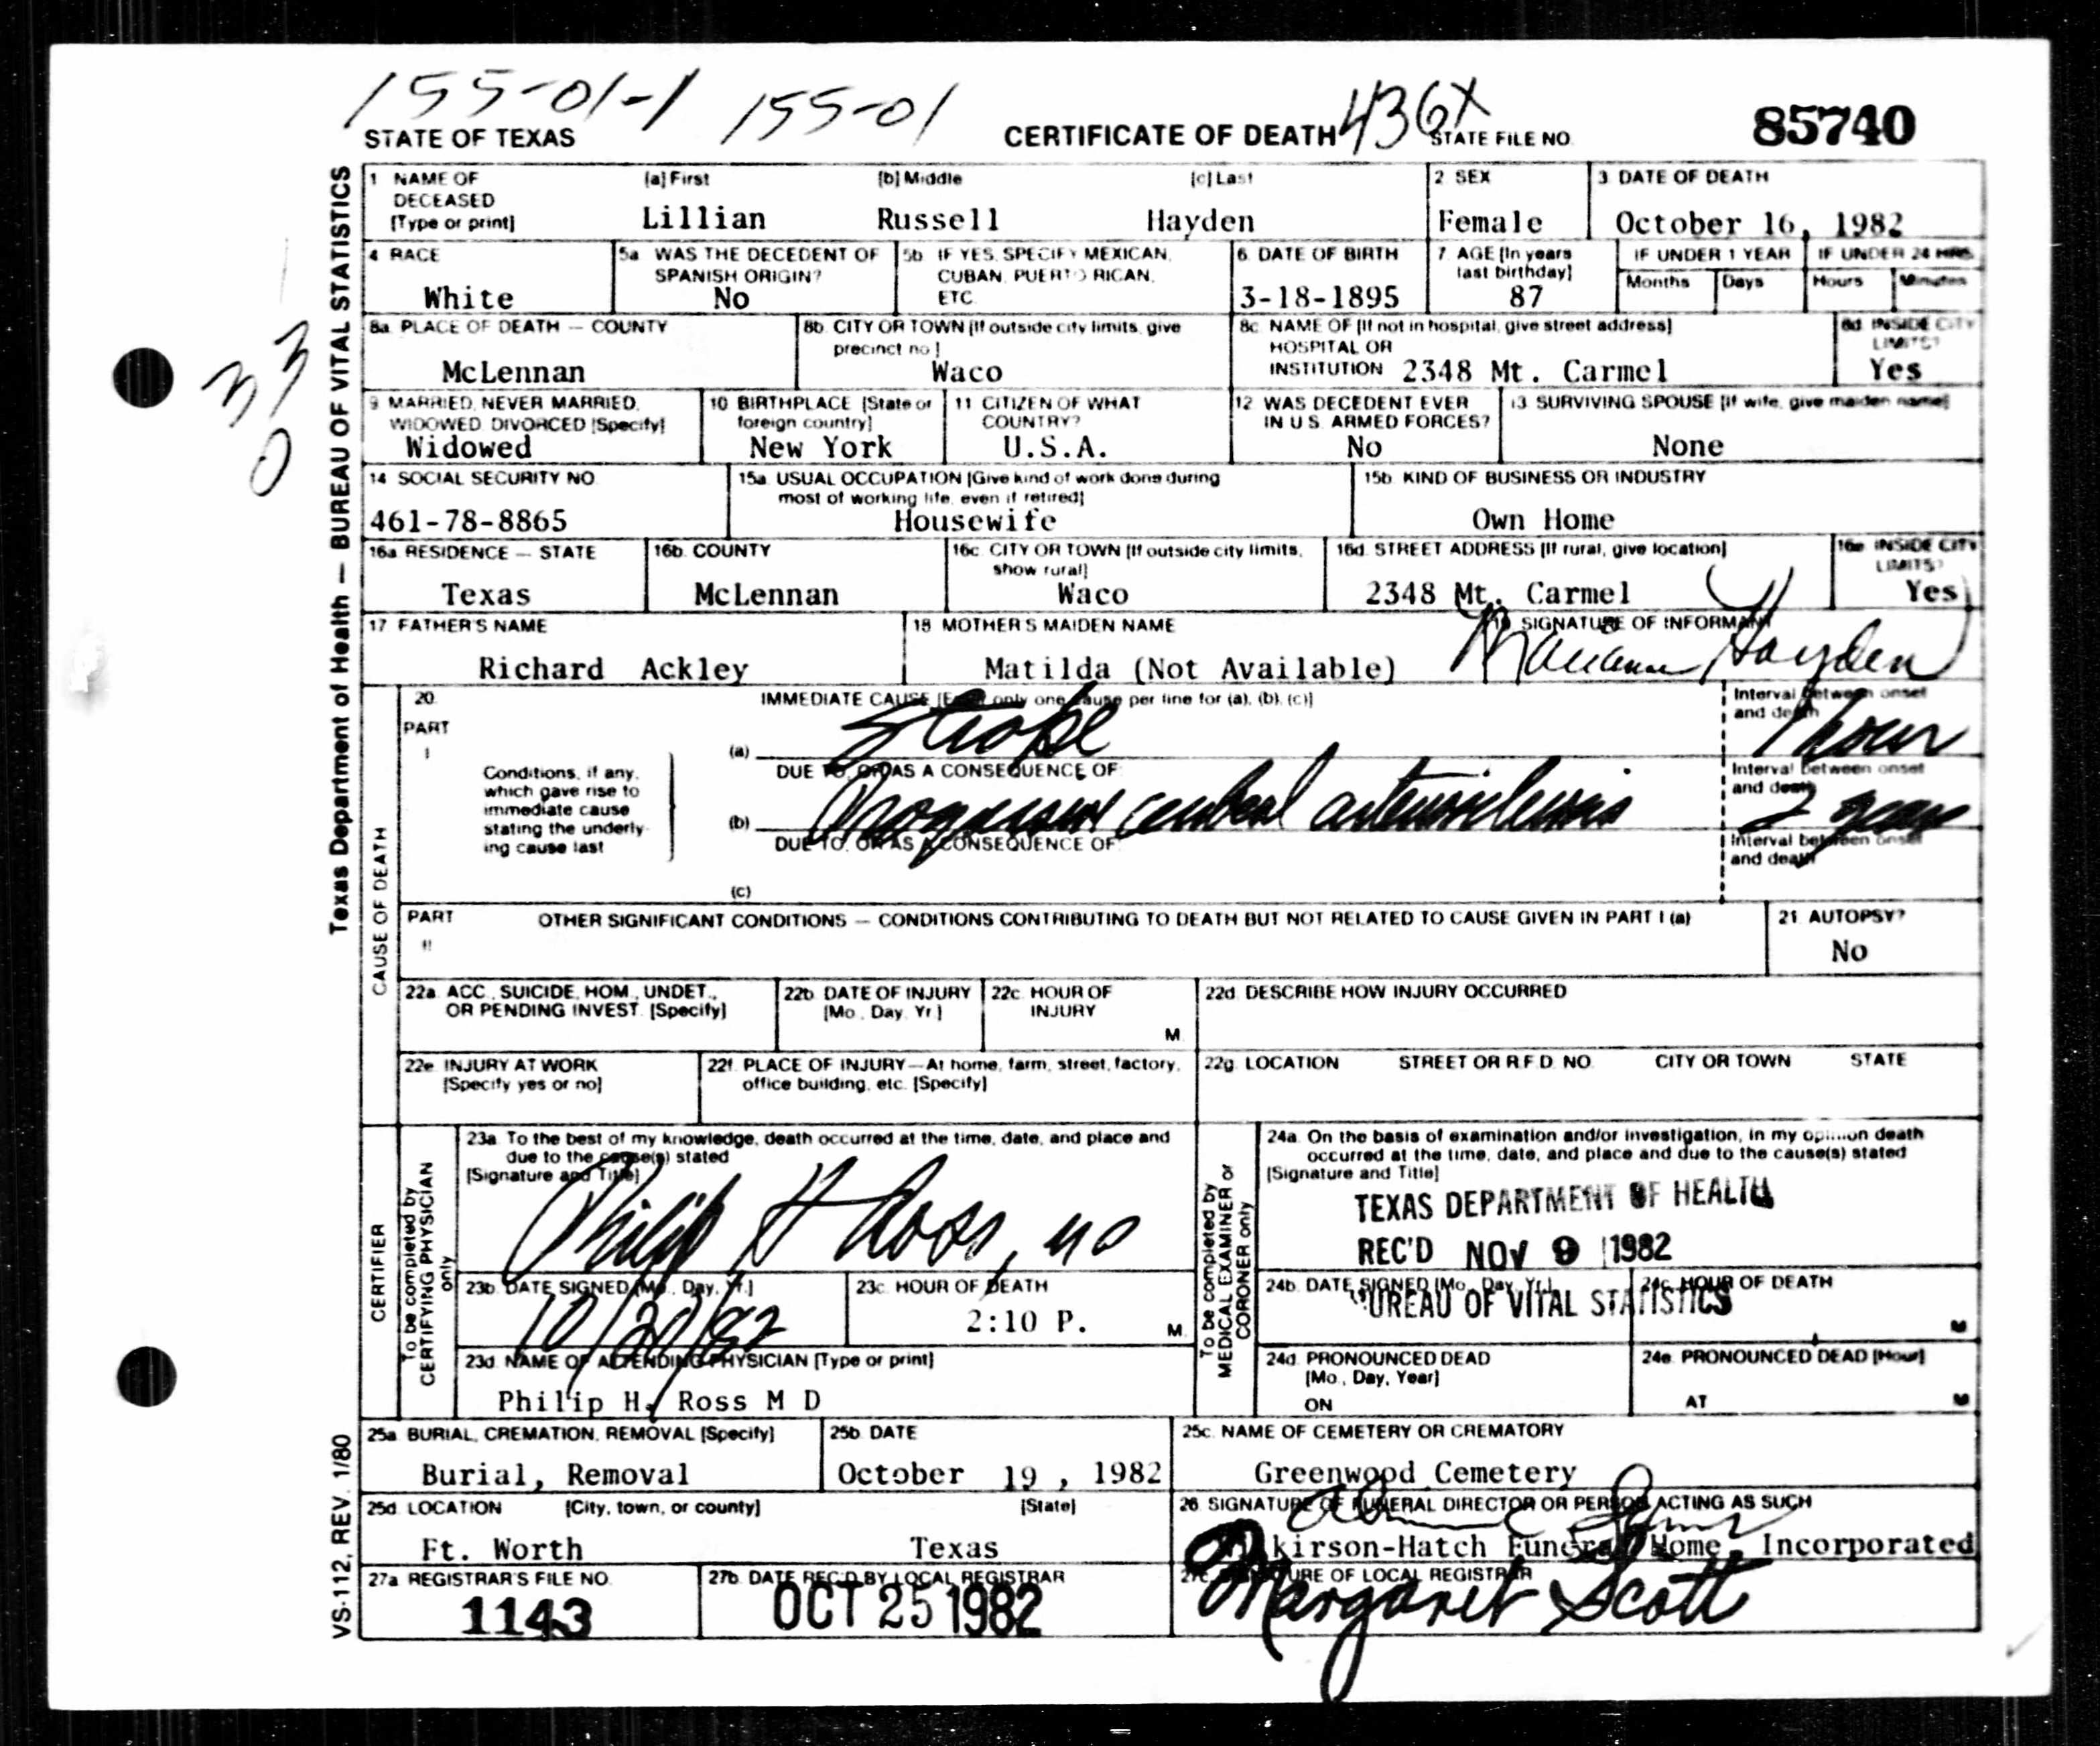 155-01-1 155-01 436X
STATE OF TEXAS CERTIFICATE OF DEATH STATE FILE NO. 85740
Texas Department of Health — BUREAU OF VITAL STATISTICS
1 NAME OF DECEASED [Type or print] (a) First (b) Middle (c) Last
Lillian Russell Hayden
2 SEX
Female
3 DATE OF DEATH
October 16, 1982
4 RACE
White
5a WAS THE DECEDENT OF SPANISH ORIGIN?
No
5b IF YES, SPECIFY MEXICAN, CUBAN, PUERTO RICAN, ETC.
6 DATE OF BIRTH
3-18-1895
7 AGE [In years last birthday]
87
IF UNDER 1 YEAR
Months Days
IF UNDER 24 HRS.
Hours Minutes
8a PLACE OF DEATH — COUNTY
McLennan
8b CITY OR TOWN [If outside city limits, give precinct no.]
Waco
8c NAME OF [If not in hospital, give street address] HOSPITAL OR INSTITUTION
2348 Mt. Carmel
8d INSIDE CITY LIMITS?
Yes
33
0
9 MARRIED, NEVER MARRIED, WIDOWED, DIVORCED [Specify]
Widowed
10 BIRTHPLACE [State or foreign country]
New York
11 CITIZEN OF WHAT COUNTRY?
U.S.A.
12 WAS DECEDENT EVER IN U.S. ARMED FORCES?
No
13 SURVIVING SPOUSE [If wife, give maiden name]
None
14 SOCIAL SECURITY NO.
461-78-8865
15a USUAL OCCUPATION [Give kind of work done during most of working life, even if retired]
Housewife
15b KIND OF BUSINESS OR INDUSTRY
Own Home
16a RESIDENCE — STATE
Texas
16b COUNTY
McLennan
16c CITY OR TOWN [If outside city limits, show rural]
Waco
16d STREET ADDRESS [If rural, give location]
2348 Mt. Carmel
16e INSIDE CITY LIMITS?
Yes
17 FATHER'S NAME
Richard Ackley
18 MOTHER'S MAIDEN NAME
Matilda (Not Available)
19 SIGNATURE OF INFORMANT
Marianne Hayden
CAUSE OF DEATH
20.
PART I
IMMEDIATE CAUSE [Enter only one cause per line for (a), (b), (c)]
(a) Stroke
Interval between onset and death
1 hour
Conditions, if any, which gave rise to immediate cause stating the underlying cause last
DUE TO, OR AS A CONSEQUENCE OF:
(b) Progressive cerebral arteriosclerosis
Interval between onset and death
2 years
DUE TO, OR AS A CONSEQUENCE OF:
(c)
Interval between onset and death
PART II
OTHER SIGNIFICANT CONDITIONS — CONDITIONS CONTRIBUTING TO DEATH BUT NOT RELATED TO CAUSE GIVEN IN PART I (a)
21. AUTOPSY?
No
22a ACC., SUICIDE, HOM., UNDET., OR PENDING INVEST. [Specify]
22b DATE OF INJURY [Mo., Day, Yr.]
22c HOUR OF INJURY
M.
22d DESCRIBE HOW INJURY OCCURRED
22e INJURY AT WORK [Specify yes or no]
22f. PLACE OF INJURY—At home, farm, street, factory, office building, etc. [Specify]
22g LOCATION STREET OR R.F.D. NO. CITY OR TOWN STATE
CERTIFIER
To be completed by CERTIFYING PHYSICIAN only
23a. To the best of my knowledge, death occurred at the time, date, and place and due to the cause(s) stated
[Signature and Title]
Philip H Ross, MD
23b. DATE SIGNED (Mo., Day, Yr.)
10/20/82
23c HOUR OF DEATH
2:10 P. M
23d. NAME OF ATTENDING PHYSICIAN [Type or print]
Philip H. Ross M D
To be completed by MEDICAL EXAMINER or CORONER only
24a. On the basis of examination and/or investigation, in my opinion death occurred at the time, date, and place and due to the cause(s) stated
[Signature and Title]
TEXAS DEPARTMENT OF HEALTH
REC'D NOV 9 1982
BUREAU OF VITAL STATISTICS
24b. DATE SIGNED (Mo., Day, Yr.)
24c. HOUR OF DEATH
M
24d. PRONOUNCED DEAD [Mo., Day, Year]
ON
24e. PRONOUNCED DEAD [Hour]
AT M
VS-112, REV. 1/80
25a. BURIAL, CREMATION, REMOVAL [Specify]
Burial, Removal
25b. DATE
October 19, 1982
25c. NAME OF CEMETERY OR CREMATORY
Greenwood Cemetery
25d. LOCATION [City, town, or county] [State]
Ft. Worth Texas
26. SIGNATURE OF FUNERAL DIRECTOR OR PERSON ACTING AS SUCH
kirson-Hatch Funeral Home, Incorporated
27a REGISTRAR'S FILE NO.
1143
27b. DATE REC'D BY LOCAL REGISTRAR
OCT 25 1982
27c. SIGNATURE OF LOCAL REGISTRAR
Margaret Scott